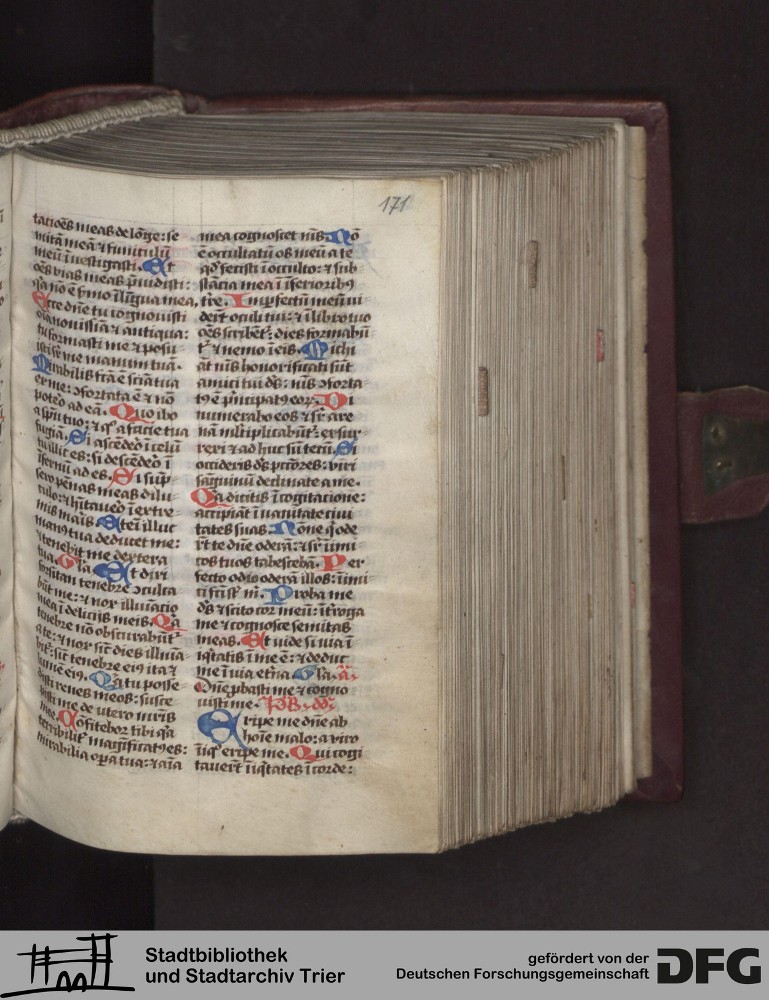 171
tacões meas de lõge: se
mitã meã ⁊ funiculũ
meũ ĩvestigasti. Et
oẽs vias meas p̃uidisti:
q̃a nõ ẽ s̃mo ĩ lĩgua mea.
Ecce dñe tu cognouisti
oĩa nouissĩa ⁊ antiqua:
tu formasti me ⁊ posu
isti sr̃ me manum tuã.
Mirabilis fc̃a ẽ sciã tua
ex me: ꝯfortata ẽ ⁊ nõ
poteo ad eã. Quo ibo
a sp̃u tuo: ⁊ q̃ a facie tua
fugiã. Si ascẽdeo ĩ celũ
tu illic es: si descẽdeo ĩ
ĩfernũ ad es. Si sũp
sero pẽnas meas dilu
culo: ⁊ h̃itaueo ĩ extre
mis maĩs. Etei illuc
manꝰ tua deducet me:
⁊ tenebit me dextera
tua. Et dixi
forsitan tenebre ꝯculca
bũt me: ⁊ nox illuiãcio
mea ĩ delicijs meis. Q̃a
tenebre nõ obscurabũt
a te: ⁊ nox sic̃ dies illuiã
bit̃: sic̃ tenebre eiꝰ ita ⁊
lumẽ eiꝰ. Q̃a tu posse
disti renes meos: susce
pisti me de utero mr̃is
mee. Cõfitebor tibi q̃a
terribilit̃ magĩficatꝰ es:
mirabilia oꝑa tua: ⁊ aĩa
mea cognoscet nĩs. Nõ
ẽ occultatũ os meũ a te
qd̃ fecisti ĩ occulto: ⁊ sub
stãcia mea ĩ ĩferioribꝰ
tr̃e. Imꝑfectũ meũ vi
derũt oculi tui: ⁊ ĩ libro tuo
oẽs scribẽt̃: dies formabũ
t̃ ⁊ nemo ĩ eis. Michi
aũt nĩs honorificati sũt
amici tui dš: nĩs ꝯforta
tꝰ ẽ p̃ncipatꝰ eoꝝ. Di
numerabo eos ⁊ sr̃ are
nã ml̃tiplicabũt̃: exsur
rexi ⁊ ad huc sũ tecũ. Si
occideris dš pccõres: viri
sãguinũ declinate a me.
Q̃a dicitis ĩ cogitacione:
accipiãt ĩ vanitate ciui
tates suas. Nõne q̃ ode
rũt te dñe oderã: ⁊ sr̃ inimi
cos tuos tabescebã. Per
fecto odio oderã illos: inimi
ci fc̃i sũt m̃. Proba me
dš ⁊ scito cor meũ: ĩt̃roga
me ⁊ cognosce semitas
meas. Et uide si via ĩ
iq̃tatis ĩ me ẽ: ⁊ deduc
me ĩ via et̃na. Gl̃a. a.
Dñe ꝓbasti me ⁊ cogno
uisti me. Ps. dd.
Eripe me dñe ab
hoĩe malo: a viro
ĩiq̃ eripe me. Qui cogi
tauerũt ĩiq̃tates ĩ corde:
Stadtbibliothek
und Stadtarchiv Trier
gefördert von der
Deutschen Forschungsgemeinschaft
DFG